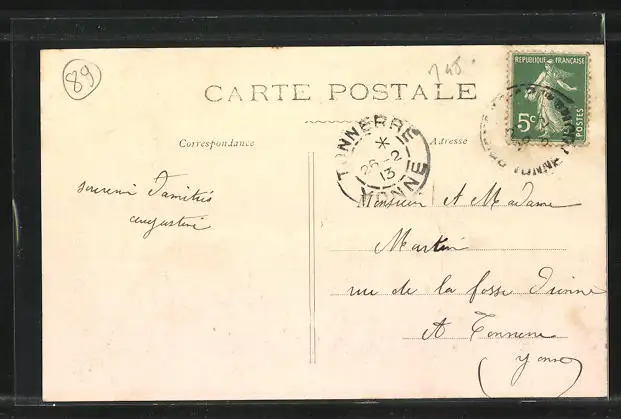 89
CARTE POSTALE
REPUBLIQUE FRANÇAISE
5c
POSTES
Correspondance
Adresse
TONNERRE
*
26-2
13
YONNE
souvenir d'amitiés
augustine
Monsieur et Madame
Martin
rue de la fosse Dionne
A Tonnerre
(Yonne)